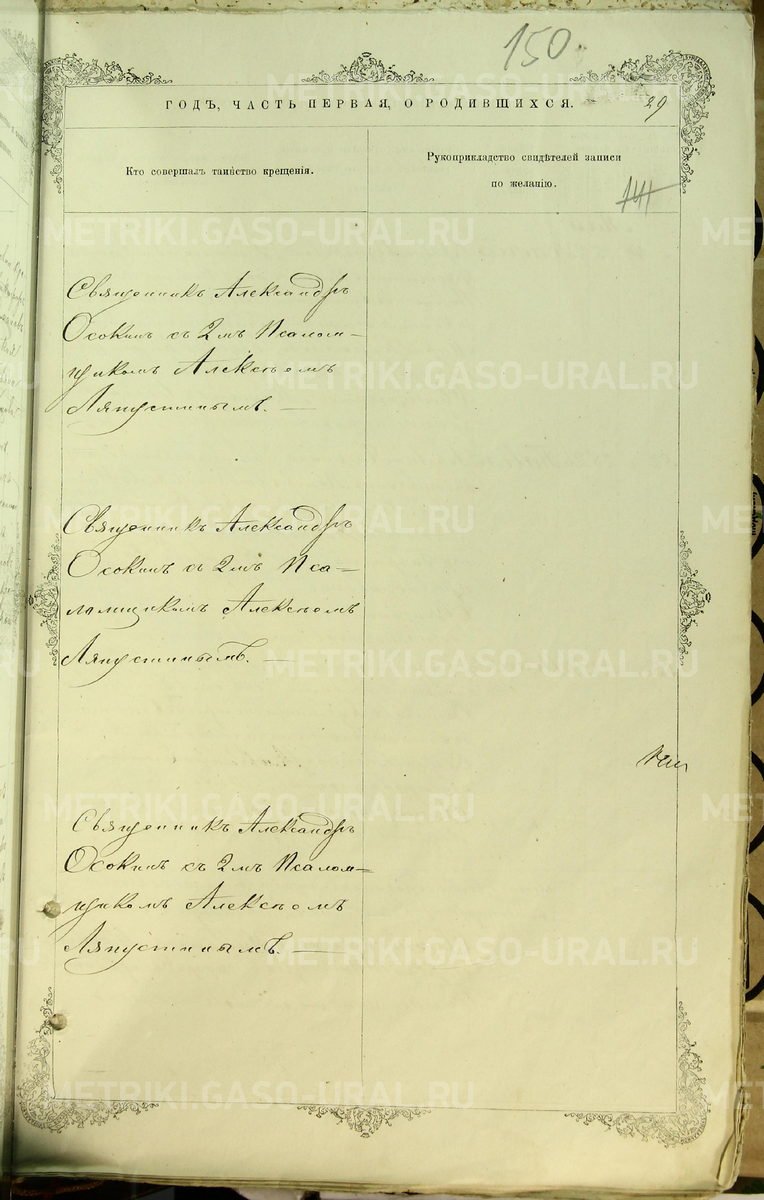 150.
ГОДЪ, ЧАСТЬ ПЕРВАЯ, О РОДИВШИХСЯ.
29
Кто совершалъ таинство крещенія.
Рукоприкладство свидѣтелей записи
по желанію.
141
Священникъ Александръ
Осокинъ съ 2мъ Псалом-
щикомъ Алексѣемъ
Ляпустинымъ. —
Священникъ Александръ
Осокинъ съ 2мъ Пса-
ломщикомъ Алексѣемъ
Ляпустинымъ. —
Священникъ Александръ
Осокинъ съ 2мъ Псалом-
щикомъ Алексѣемъ
Ляпустинымъ. —
METRIKI.GASO-URAL.RU